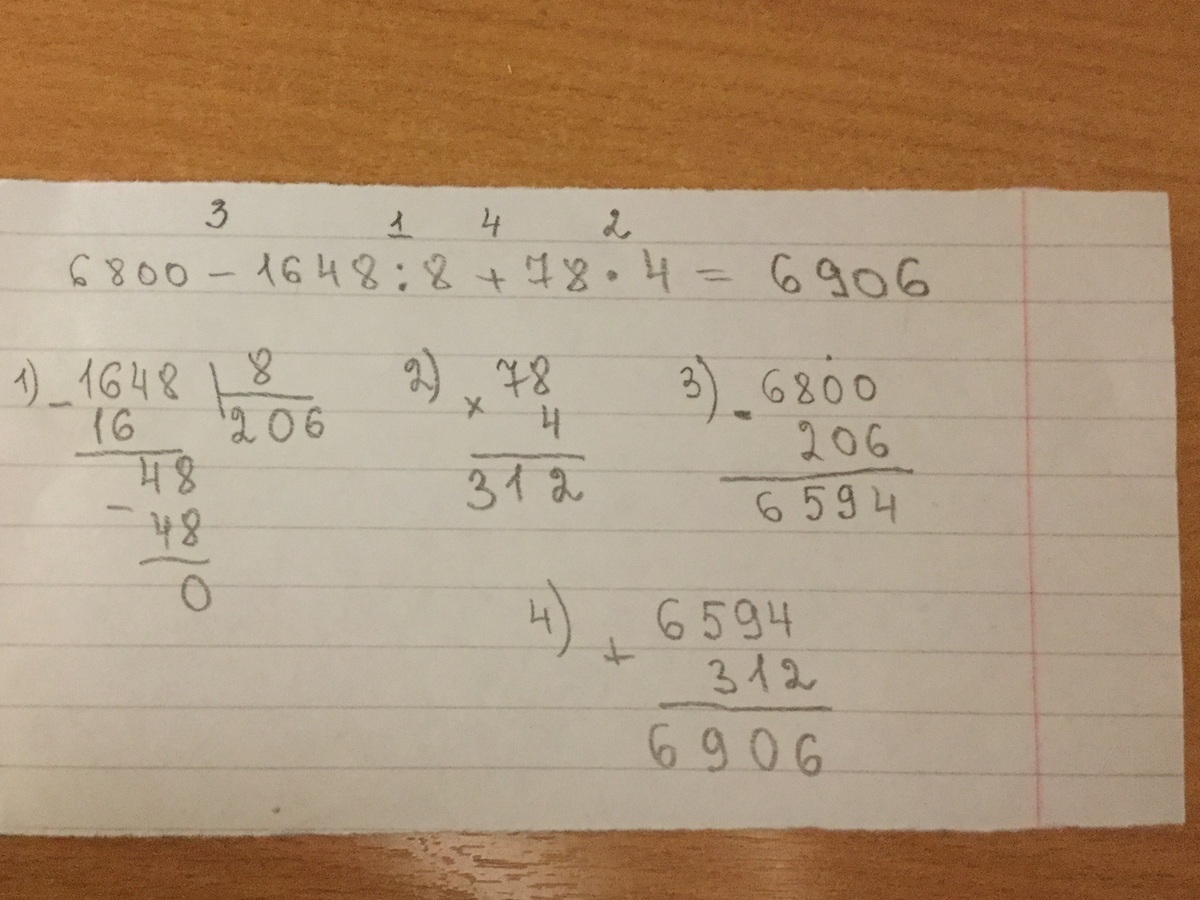 3 1 4 2
6800 - 1648 : 8 + 78 · 4 = 6906
1) - 1648 8
16 206
48
- 48
0
2) × 78
4
312
3) - 6800
206
6594
4) + 6594
312
6906